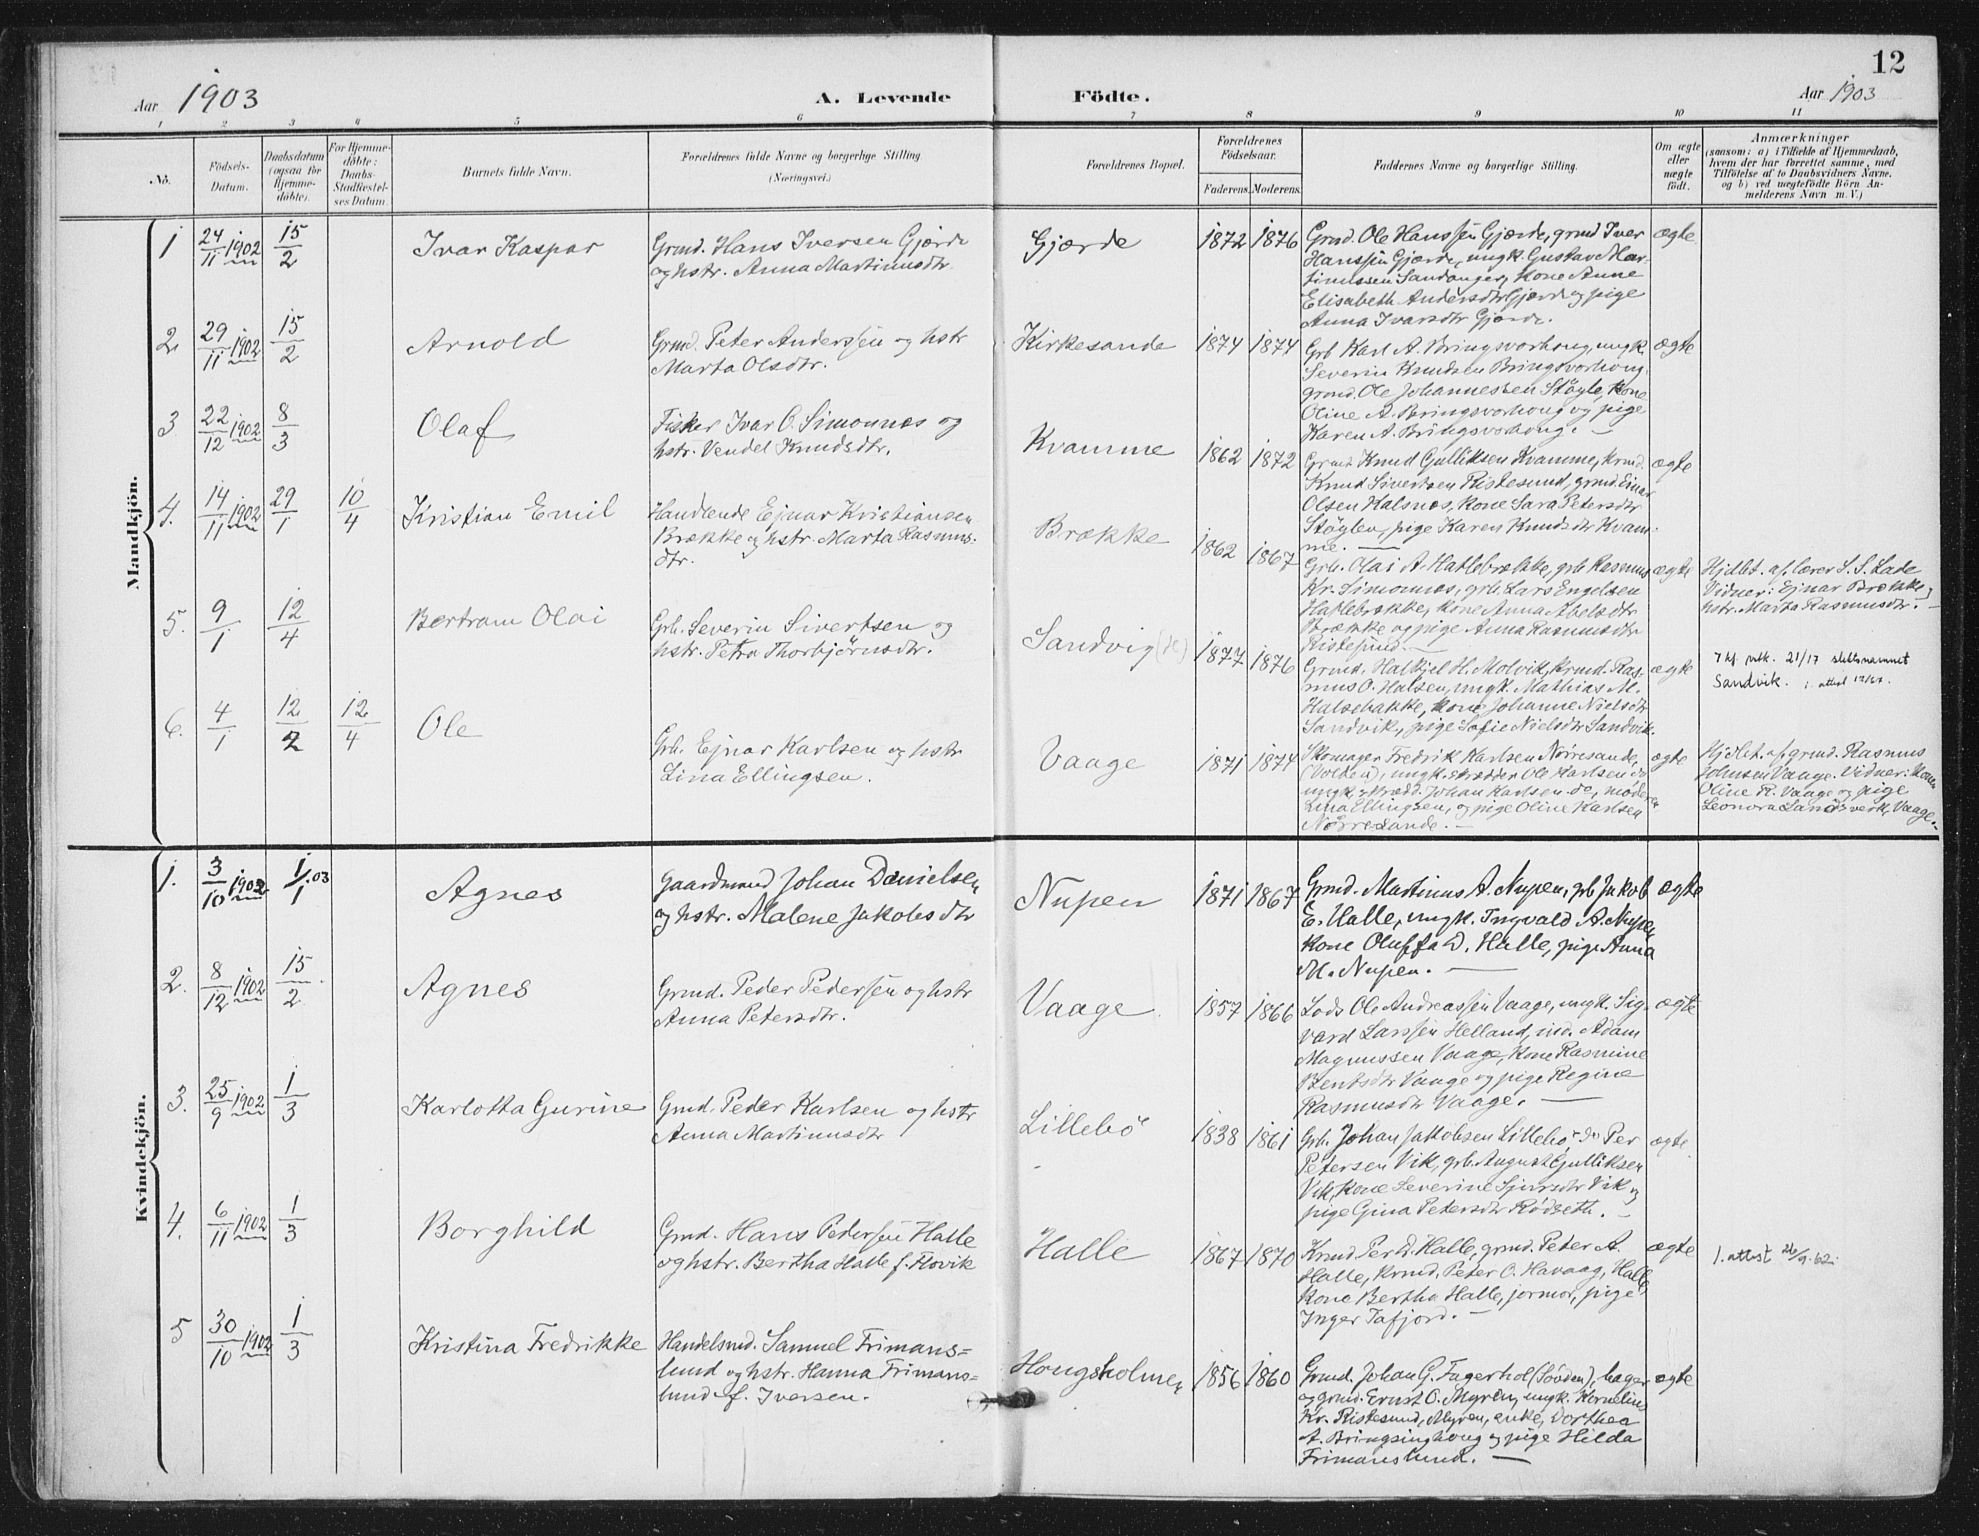 12
Aar 1903 A. Levende Födte. Aar 1903
1 2 3 4 5 6 7 8 9 10 11
No.
Födsels-
Datum.
Daabsdatum
(ogsaa for
Hjemme-
döbte).
For Hjemme-
döbte:
Daabs-
Stadfæstel-
ses Datum.
Barnets fulde Navn.
Forældrenes fulde Navne og borgerlige Stilling
(Næringsvei.)
Forældrenes Bopæl.
Forældrenes
Födselsaar.
Faderens. Moderens.
Faddernes Navne og borgerlige Stilling.
Om ægte
eller
uægte
födt.
Anmærkninger
(saasom: a) i Tilfælde af Hjemmedaab,
hvem der har forrettet samme, med
Tilföielse af to Daabsvidners Navne,
og b) ved uægtefödte Börn An-
melderens Navn m. V.)
Mandkjön.
1 24/11 1902 15/2 Ivar Kaspar
Grmd. Hans Iversen Gjærde
og hstr. Anna Martinusdtr.
Gjærde 1872 1876
Grmd. Ole Hanssen Gjærde, grmd Iver
Hanssen Gjærde, ungk. Gustav Mar-
tinussen Sandanger, kone Anne
Elisabeth Andersdtr Gjærde og pige
Anna Ivarsdtr Gjærde.
ægte
2 29/11 1902 15/2 Arnold
Grmd. Peter Anderssen og hstr
Marta Olsdtr.
Kirkesande 1874 1874
Grb Karl A. Bringsvorhoug, ungk.
Severin Knudsen Bringsvorhoug
grmd. Ole Johannessen Støyle, kone
Oline A. Bringsvorhoug og pige
Karen A. Bringsvorhoug. —
ægte
3 22/12 1902 8/3 Olaf
Fisker Ivar O. Simonnes og
hstr. Vendel Knudsdtr.
Kvamme 1862 1872
Grmd Knud Gulliksen Kvamme, krmd.
Knud Sivertsen Riskesund, grmd Einar
Olsen Halsnes, kone Sara Petersdtr
Støylen, pige Karen Knudsdtr Kvam-
me. —
ægte
4. 14/11 1902 29/1 10/4 Kristian Emil
Handlende Ejnar Kristiansen
Brække og hstr. Marta Rasmus-
dtr.
Brække 1862 1867
Grb. Olai A. Hatlebrække, grb Rasmus
Kr. Simonnes, grb. Lars Engelsen
Hatlebrække, kone Anna Abelsdtr
Brække og pige Anna Rasmusdtr
Riskesund. —
ægte
Hjdbt. af lærer S. S. Lade
Vidner: Ejnar Brække,
hstr. Marta Rasmusdtr. —
5. 9/1 12/4 Bertram Olai
Grb. Severin Sivertsen og
hstr. Petra Thorbjørnsdtr.
Sandvig (k) 1877 1876
Grmd. Halkjel H. Molvik, krmd. Ras-
mus O. Halsen, ungk. Mathias M.
Halsebakke, kone Johanne Nielsdtr
Sandvik, pige Sofie Nielsdtr Sandvik.
ægte
21/17 slektsnamnet
Sandvik.
6. 4/1 12/2 12/4 Ole
Grb. Ejnar Karlsen og hstr
Lina Ellingsen.
Vaage 1871 1874
Skomager Fredrik Karlsen Nørresande,
(Volden), ungk. skrædder Ole Karlsen do
ungk. skrædd. Johan Karlsen do, moderen
Lina Ellingsen, og pige Oline Karlsen
Nørresande. —
ægte
Hjdbt. af grmd. Rasmus
Johnsen Vaage. Vidner: Konen
Oline R. Vaage og pige
Leonora Landsverk, Vaage. —
Kvindekjön.
1. 3/10 1902 1/1 03 Agnes
Gaardmand Johan Danielsen
og hstr. Malene Jakobsdtr
Nupen 1871 1867
Grmd. Martinus A. Nupen, grb Jakob
E. Halle, ungk. Ingvald A. Nupen
kone Oluffa D. Halle, pige Anna
M. Nupen. —
ægte
2. 8/12 1902 15/2 Agnes
Grmd. Peder Pedersen og hstr
Anna Petersdtr.
Vaage. 1857 1866
Lods Ole Andreassen Vaage, ungk. Sig-
vard Larssen Helland, ind. Adam
Magnussen Vaage, kone Rasmine
Bentsdtr Vaage og pige Regine
Rasmusdtr Vaage. —
ægte
3. 25/9 1902 1/3 Karlotta Gurine
Gmd. Peder Karlsen og hstr
Anna Martinusdtr
Lillebö 1838 1861
Grb. Johan Jakobsen Lillebö, do Per
Petersen Vik, grb. August Gulliksen
Vik, kone Severine Sjursdtr Vik og
pige Gina Petersdtr Rödseth. —
ægte.
4. 6/11 1902 1/3 Borghild
Grmd. Hans Pedersen Halle
og hstr. Bertha Halle f. Flovik
Halle 1867 1870
Krmd Per D. Halle, grmd. Peter A.
Halle, krmd. Peter O. Havaag, Halle
kone Bertha Halle, jormor, pige
Inger Tafjord. —
ægte
1. attest 26/9. 62.
5 30/10 1902 1/3 Kristina Fredrikke
Handelsmd. Samuel Frimans=
lund og hstr. Hanna Frimans=
lund f. Iversen.
Hougsholmen 1856 1860
Grmd. Johan G. Fagerhol (Søvden), bager
og grmd. Ernst O. Myren, ungk. Kornelius
Kr. Riskesund, Myren, enke, Dorthea
A. Bringsinghoug og pige Hilda
Frimanslund. —
ægte